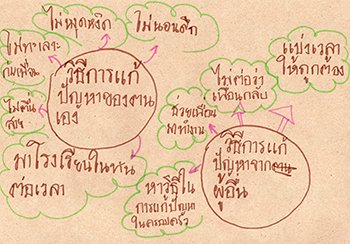 ไม่หงุดหงิด
ไม่นอนดึก
ไม่ทะเลาะ
กับเพื่อน
วิธีการแก้
ปัญหาของตาน
เอง
ไม่ตื่น
สาย
มาโรงเรียนให้ทัน
ต่อเวลา
แบ่งเวลา
ให้ถูกต้อง
ไม่ต่อว่า
เพื่อนกลับ
ช่วยเพื่อน
มาทำงาน
วิธีการแก้
ปัญหาจาก
ผู้อื่น
หาวิธีใน
การแก้ปัญหา
ในครอบครัว